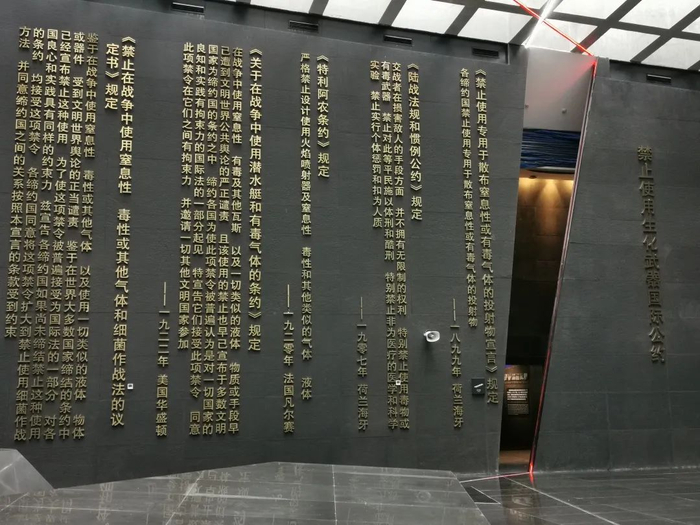 禁止使用生化武器国际公约
《禁止使用专用于散布窒息性或有毒气体的投射物宣言》规定
各缔约国禁止使用专用于散布窒息性或有毒气体的投射物
——一八九九年 荷兰海牙
《陆战法规和惯例公约》规定
交战者在损害敌人的手段方面 并不拥有无限制的权利 特别禁止使用毒物或
有毒武器 禁止对此等平民施以体刑和酷刑 特别禁止非为医疗的医学和科学
实验 禁止实行个体惩罚和扣为人质
——一九零七年 荷兰海牙
《特利阿农条约》规定
严格禁止设计使用火焰喷射器及窒息性 毒性和其他类似的气体 液体
——一九二零年 法国凡尔赛
《关于在战争中使用潜水艇和有毒气体的条约》规定
在战争中使用窒息性 有毒及其他瓦斯 以及一切类似的液体 物质或手段早
已遭到文明世界公共舆论的严正谴责 且该使用的禁止也早已宣布于多数文明
国家为缔约国的条约之中 缔约各国为使此项禁令被普遍认为是对一切国家的
良知和实践有拘束力的国际法的一部分起见 特宣告它们接受此项禁令 同意
此项禁令在它们之间有拘束力 并邀请一切其他文明国家参加
——一九二二年 美国华盛顿
《禁止在战争中使用窒息性 毒性或其他气体和细菌作战法的议
定书》规定
鉴于在战争中使用窒息性 毒性或其他气体 以及使用一切类似的液体 物体
或器件 受到文明世界舆论的正当谴责 鉴于在世界大多数国家缔结的条约中
已经宣布禁止这种使用 为了使这项禁令被普遍接受为国际法的一部分 对各
国良心和实践具有同样的约束力 兹宣告各缔约国如果尚未缔结禁止这种使用
的条约 均接受这项禁令 各缔约国同意将这项禁令扩大到禁止使用细菌作战
方法 并同意缔约国之间的关系按照本宣言的条款受到约束